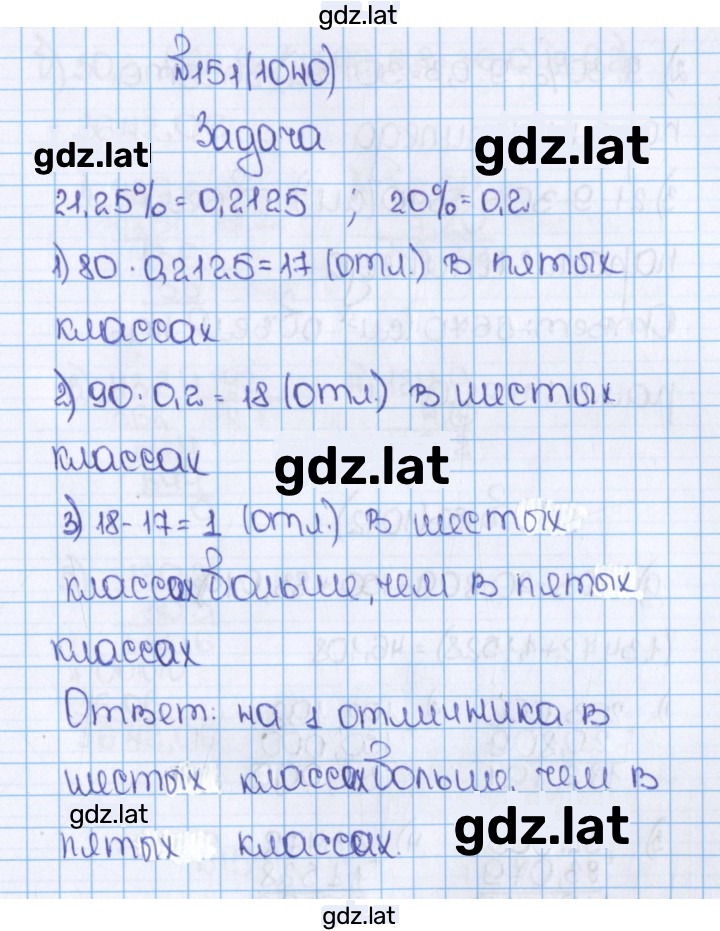 gdz.lat
№151(1040)
Задача
gdz.lat
gdz.lat
21,25% = 0,2125 ; 20% = 0,2
1) 80 · 0,2125 = 17 (отл.) в пятых
классах
2) 90 · 0,2 = 18 (отл.) в шестых
классах
gdz.lat
3) 18 - 17 = 1 (отл.) в шестых
классах больше, чем в пятых
классах
Ответ: на 1 отличника в
шестых классах больше, чем в
gdz.lat
gdz.lat
пятых классах.
gdz.lat